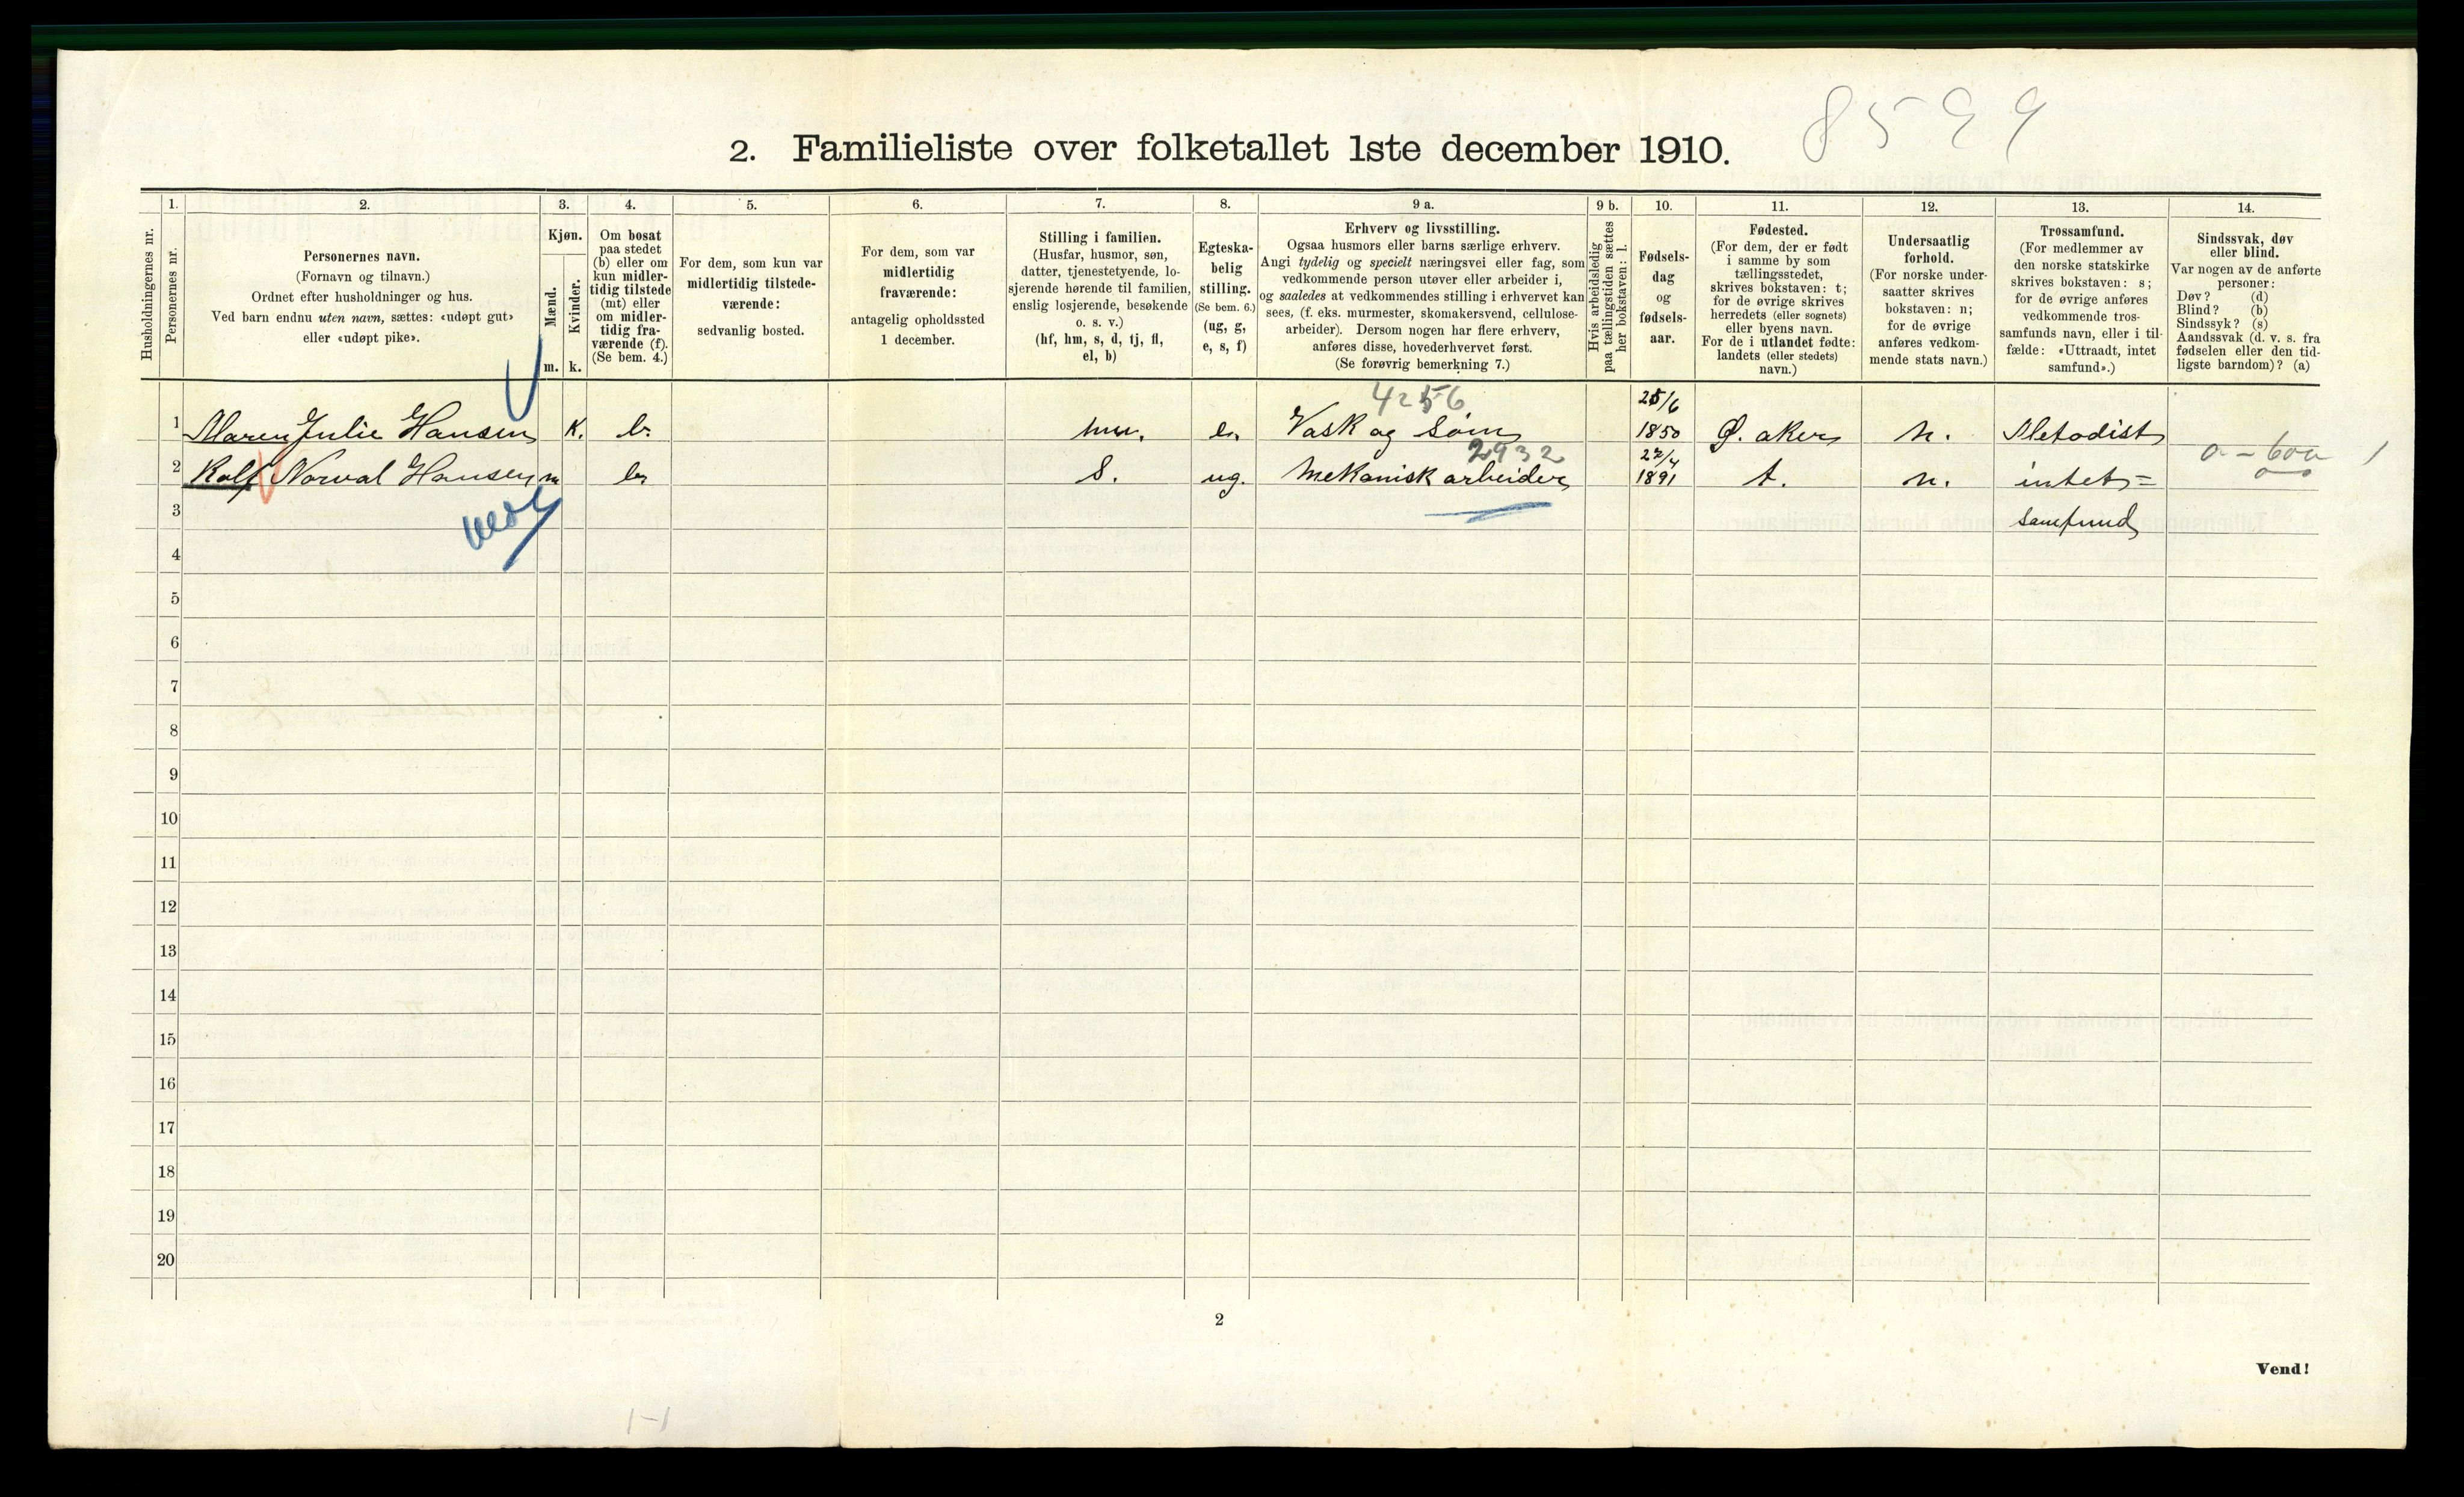 8599
2. Familieliste over folketallet 1ste december 1910.
Husholdningernes nr.
1.
Personernes nr.
2.
Personernes navn.
(Fornavn og tilnavn.)
Ordnet efter husholdninger og hus.
Ved barn endnu uten navn, sættes: «udøpt gut»
eller «udøpt pike».
3.
Kjøn.
Mænd.
Kvinder.
m. k.
4.
Om bosat
paa stedet
(b) eller om
kun midler-
tidig tilstede
(mt) eller
om midler-
tidig fra-
værende (f).
(Se bem. 4.)
5.
For dem, som kun var
midlertidig tilstede-
værende:
sedvanlig bosted.
6.
For dem, som var
midlertidig
fraværende:
antagelig opholdssted
1 december.
7.
Stilling i familien.
(Husfar, husmor, søn,
datter, tjenestetyende, lo-
sjerende hørende til familien,
enslig losjerende, besøkende
o. s. v.)
(hf, hm, s, d, tj, fl,
el, b)
8.
Egteska-
belig
stilling.
(Se bem. 6.)
(ug, g,
e, s, f)
9 a.
Erhverv og livsstilling.
Ogsaa husmors eller barns særlige erhverv.
Angi tydelig og specielt næringsvei eller fag, som
vedkommende person utøver eller arbeider i,
og saaledes at vedkommendes stilling i erhvervet kan
sees, (f. eks. murmester, skomakersvend, cellulose-
arbeider). Dersom nogen har flere erhverv,
anføres disse, hovederhvervet først.
(Se forøvrig bemerkning 7.)
9 b.
Hvis arbeidsledig
paa tællingstiden sættes
her bokstaven: l.
10.
Fødsels-
dag
og
fødsels-
aar.
11.
Fødested.
(For dem, der er født
i samme by som
tællingsstedet,
skrives bokstaven: t;
for de øvrige skrives
herredets (eller sognets)
eller byens navn.
For de i utlandet fødte:
landets (eller stedets)
navn.)
12.
Undersaatlig
forhold.
(For norske under-
saatter skrives
bokstaven: n;
for de øvrige
anføres vedkom-
mende stats navn.)
13.
Trossamfund.
(For medlemmer av
den norske statskirke
skrives bokstaven: s;
for de øvrige anføres
vedkommende tros-
samfunds navn, eller i til-
fælde: «Uttraadt, intet
samfund».)
14.
Sindssvak, døv
eller blind.
Var nogen av de anførte
personer:
Døv? (d)
Blind? (b)
Sindssyk? (s)
Aandssvak (d. v. s. fra
fødselen eller den tid-
ligste barndom)? (a)
4256
1 Maren Julie Hansen K. b. hm. e. Vask og Søm 25/6 1850 Ø. aker n. Metodist
2932
2 Rolf Norval Hansen m b ug. Mekanisk arbeider 1891 t. n. intet=
S.
3 samfund
4
5
6
7
8
9
10
11
12
13
14
15
16
17
18
19
20
2
Vend!
1-1